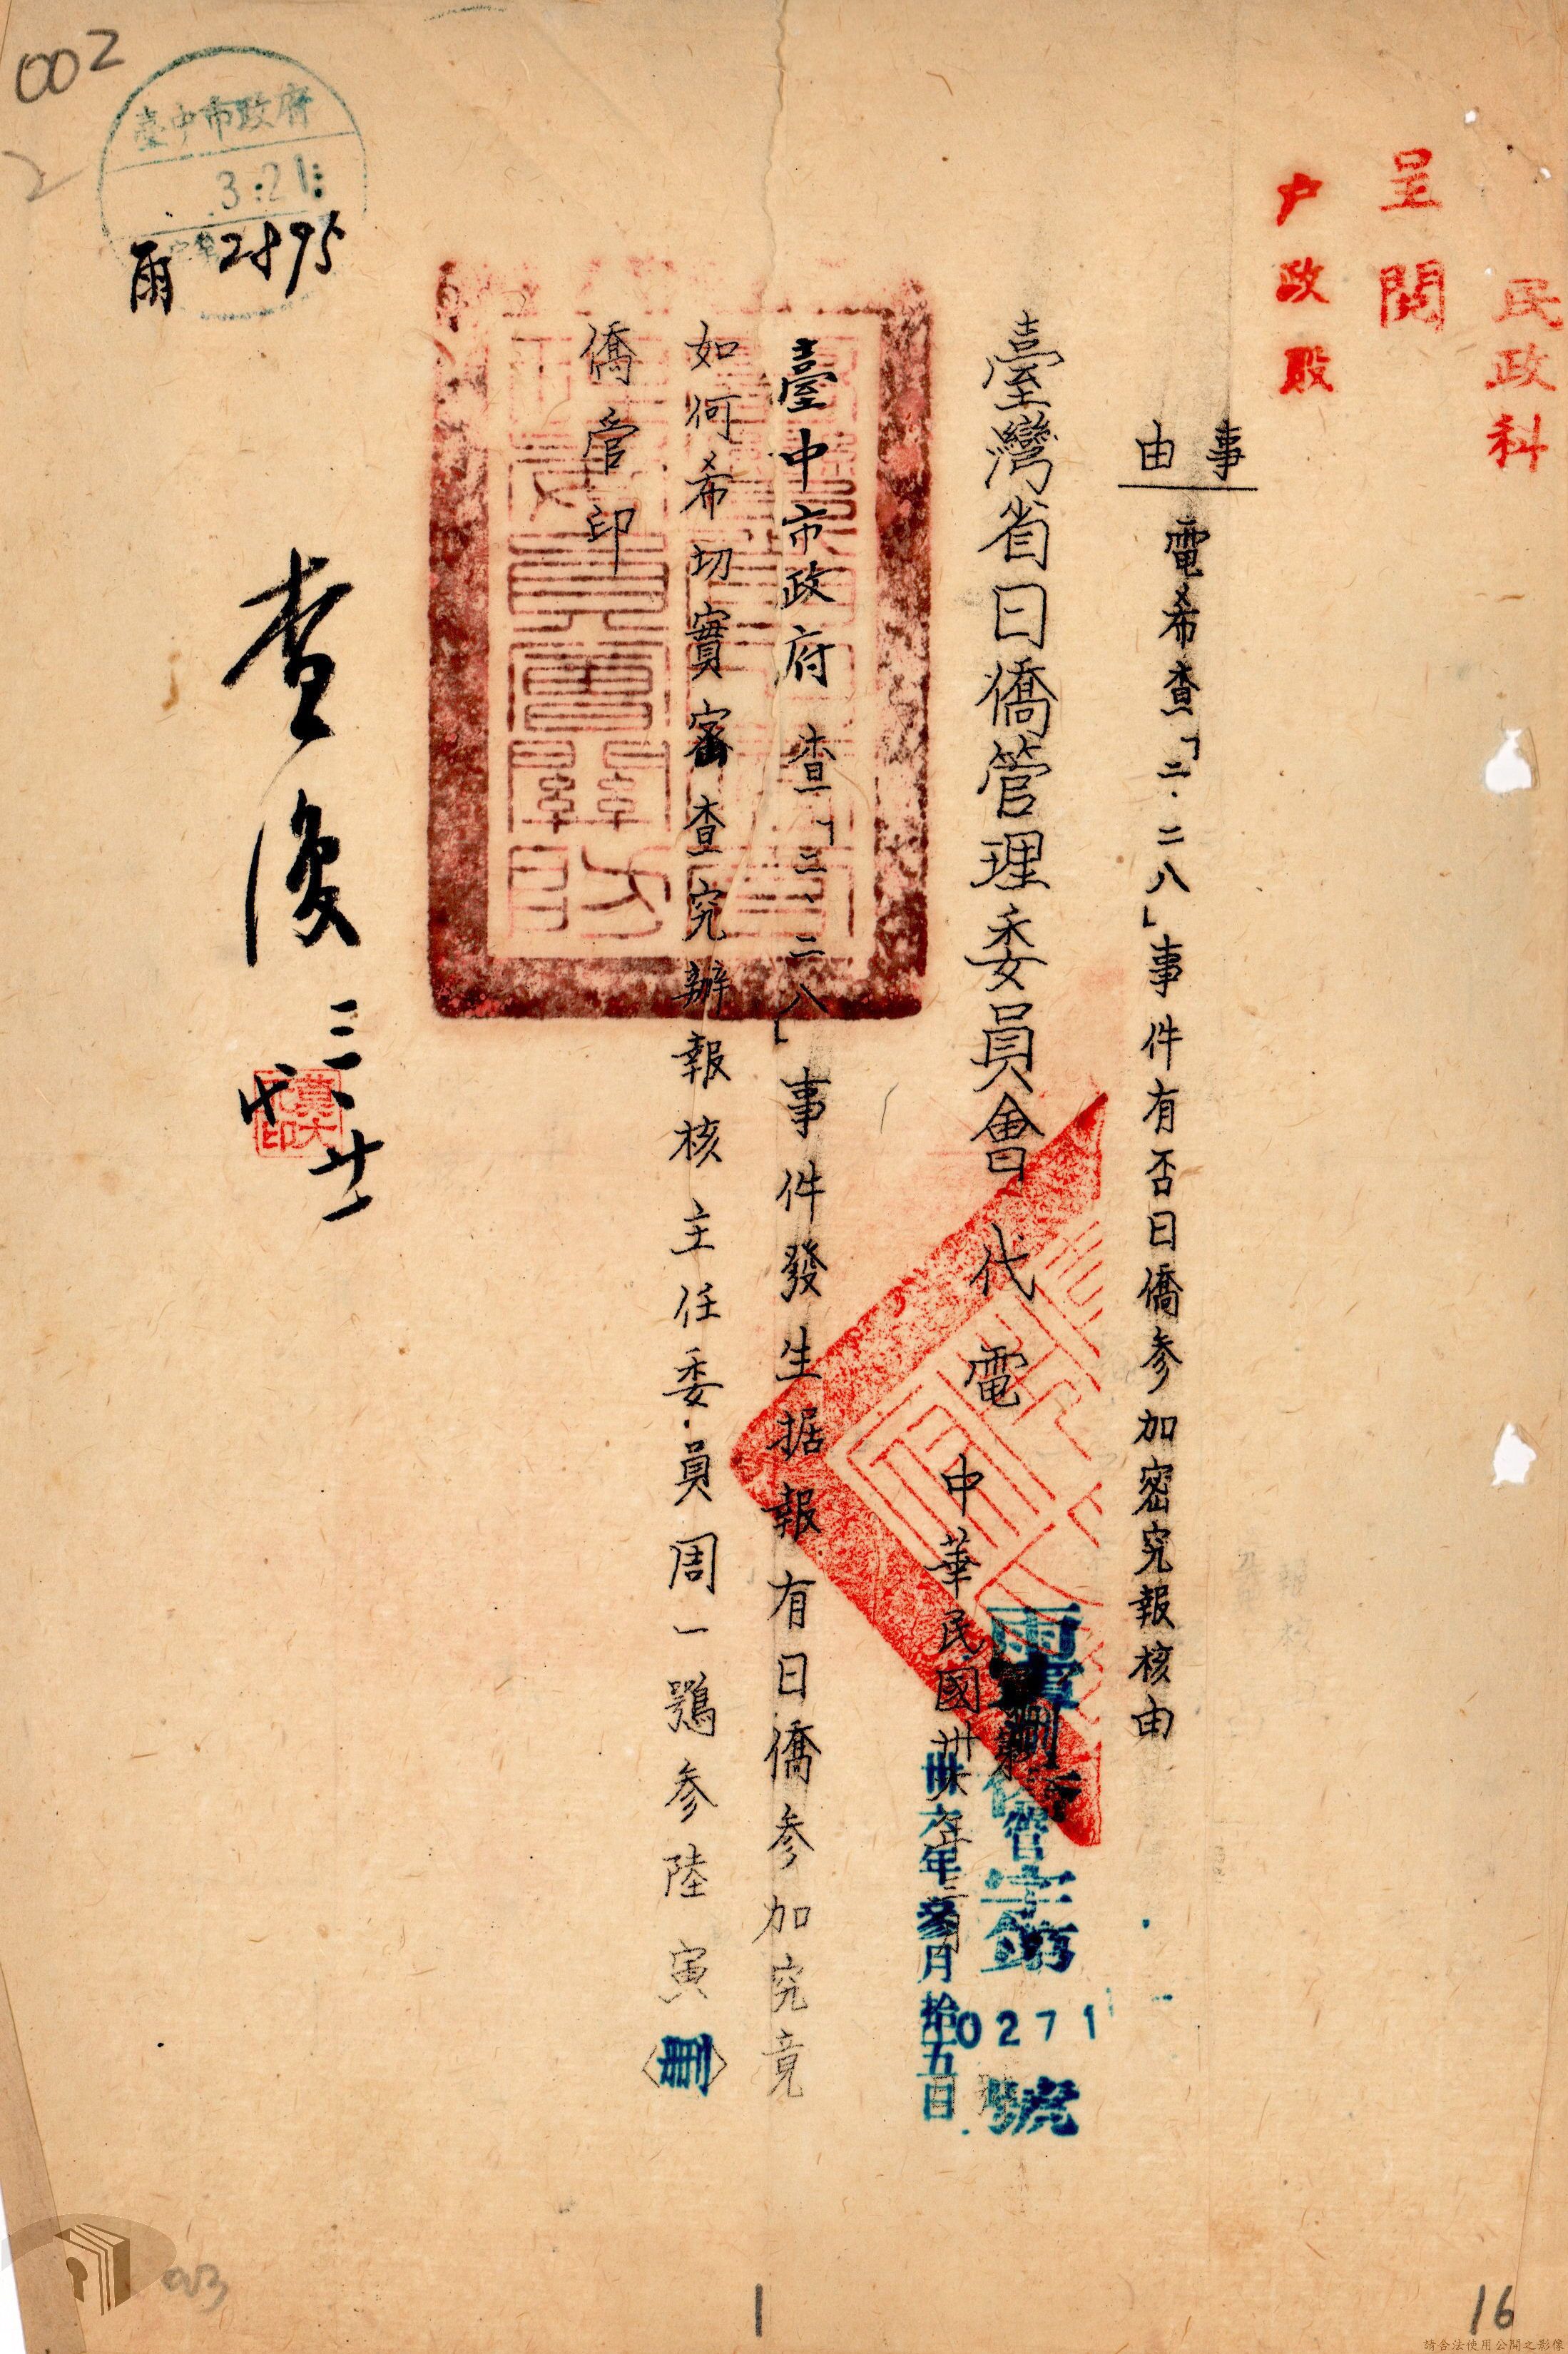 民政科
呈閱
戶政股
事由
電希查「二·二八」事件有否日僑参加密究報核由
臺灣省日僑管理委員會代電
僑管字第0271號
中華民國卅六年三月
卅六年参月拾五日
臺中市政府 查「二、二八」事件發生据報有日僑参加究竟
如何希切實密查究辦報核主任委員周一鶚参陸寅〈刪〉
僑管印
查復 三、廿一
代
臺中市政府
3.21
雨 2895
002
2
003
1
16
請合法使用公開之影像